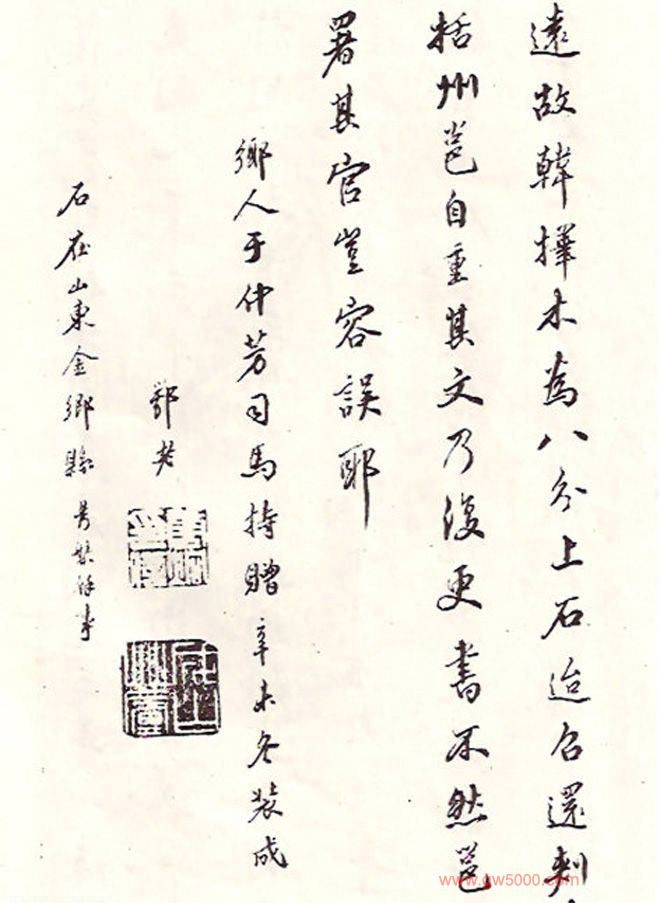 遠故韓擇木為八分上石迨召還刺
括州邕自重其文乃復更書不然邕
署其官豈容誤耶
鄉人于仲芳司馬持贈辛未冬裝成
鄂老
石在山東金鄉縣
www.gw5000.com